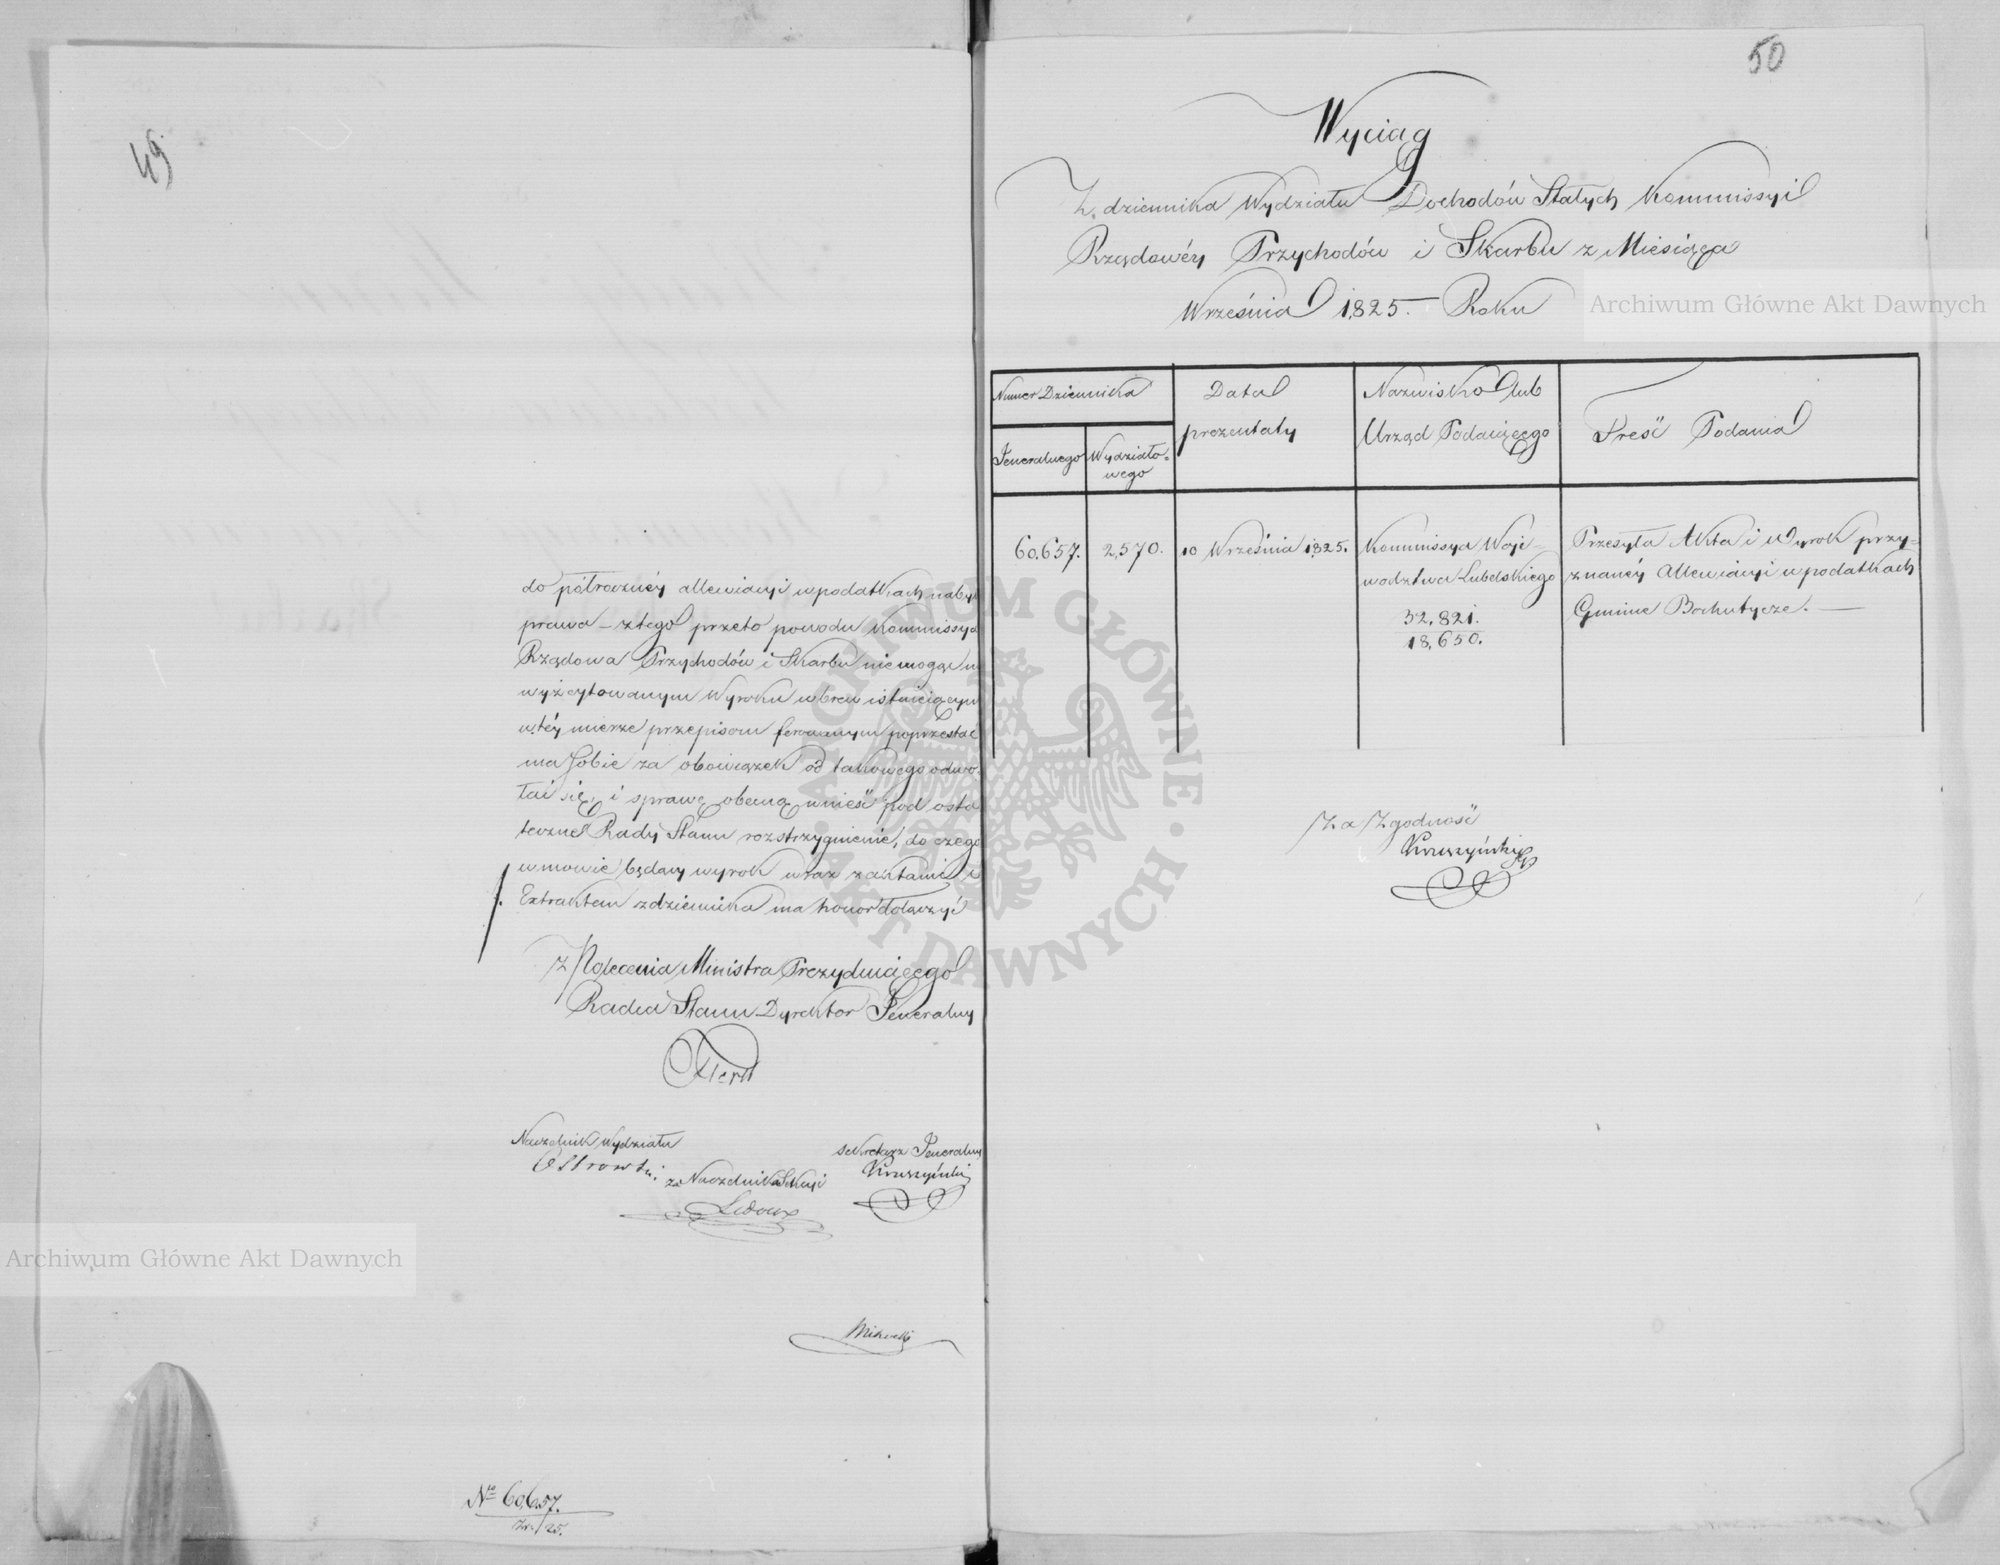 49
do półroczney allewiacyi w podatkach nabył
prawa – z tego przeto powodu Kommissya
Rządowa Przychodów i Skarbu nie mogąc na
wyżcytowanym Wyroku wbrew istnieiącym
w téy mierze przepisom ferowanym poprzestać
ma Sobie za obowiązek od takowego odwo-
łać się, i sprawę obecną wnieść pod osta
teczne Rady Stanu rozstrzygnienie, do czego
w mowie będący wyrok wraz z aktami i
Extraktem z dziennika ma honor dołączyć
Z Polecenia Ministra Prezyduiącego
Radca Stanu Dyrektor Jeneralny
Naczelnik Wydziału
Ostrowski
za Naczelnika Sekcyi
Ledoux
Sekretarz Jeneralny
Kruszyński
No 60,657.
/25.
50
Wyciąg
Z dziennika Wydziału Dochodów Stałych Kommissyi
Rządowéy Przychodów i Skarbu z Miesiąca
Września 1825. – Roku
Numer Dziennika
Jeneralnego
Wydziało=
wego
Data
prezentaty
Nazwisko lub
Urząd Podaiącego
Treść Podania
60,657.
2,570.
10 Września 1825.
Kommissya Woje-
wodztwa Lubelskiego
32,821.
18,650.
Przesyła Akta i Wyrok przy=
znanéy Allewiacyi w podatkach
Gminie Bochutycze. —
Za Zgodność
Kruszyński
Archiwum Główne Akt Dawnych
Archiwum Główne Akt Dawnych
ARCHIWUM GŁÓWNE · AKT DAWNYCH ·